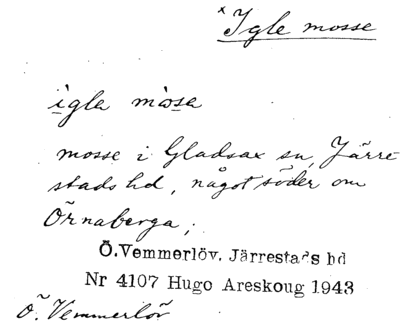 x Igle mosse
igla mosa
mosse i Gladsax sn, Järre-
stads hd, något söder om
Örnaberga;
Ö.Vemmerlöv. Järrestads hd
Nr 4107 Hugo Areskoug 1943
Ö. Vemmerlöv